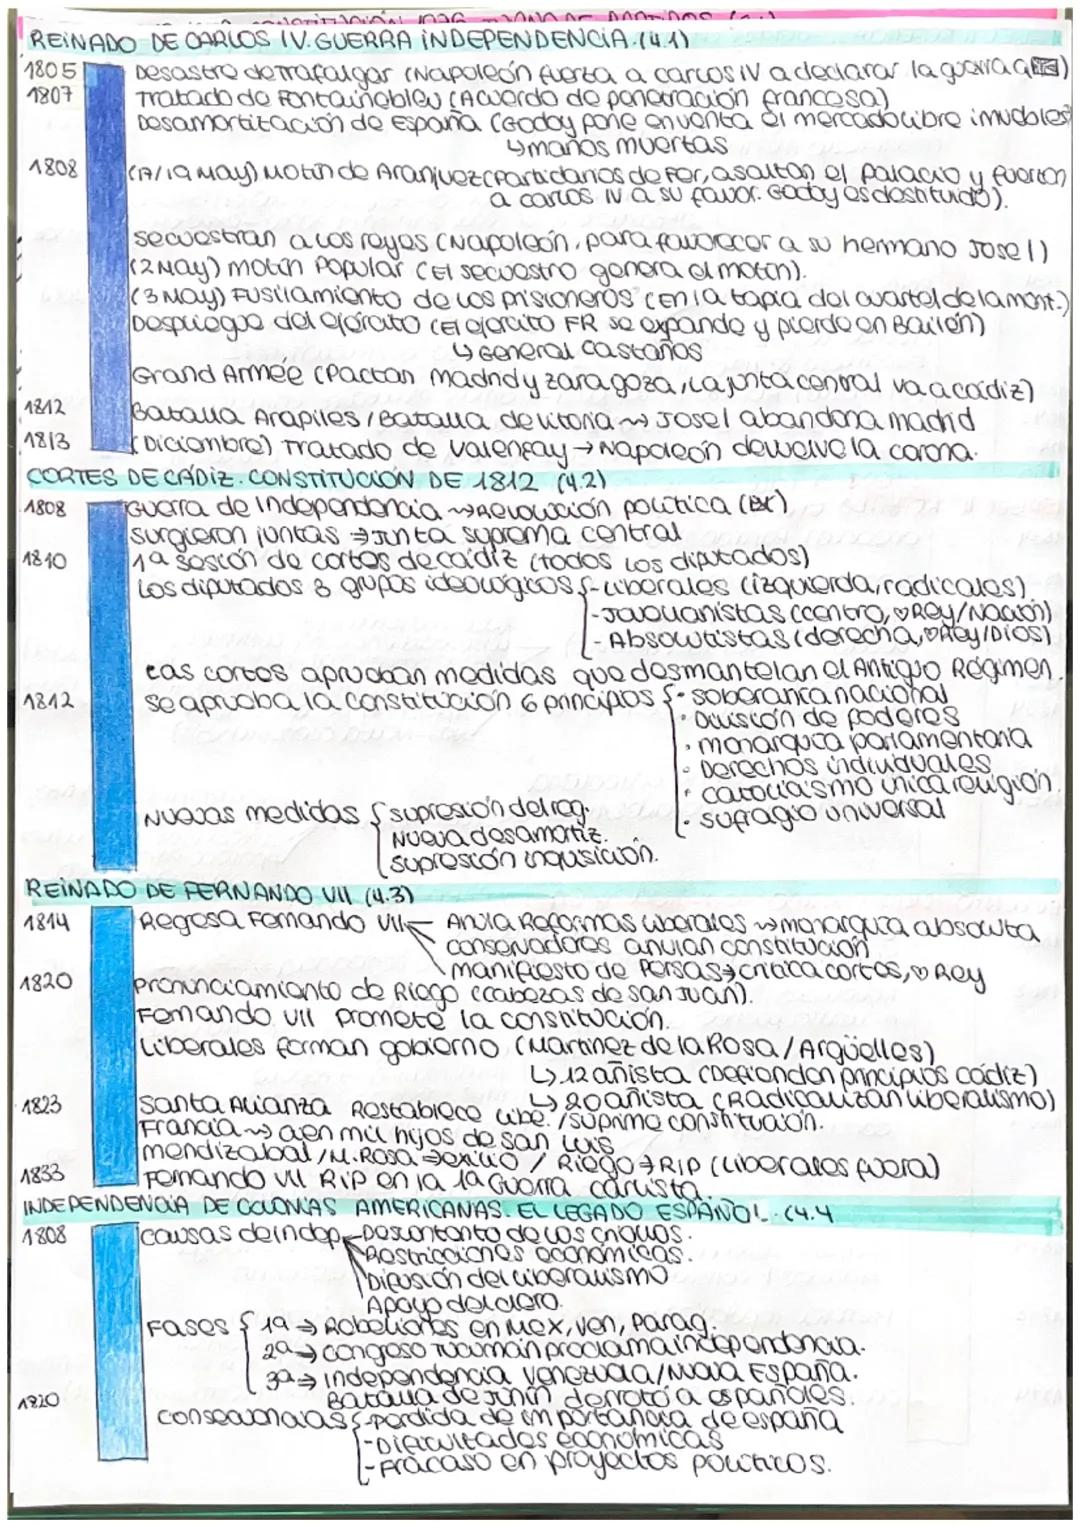 REINADO DE CARLOS IV. GUERRA INDEPENDENCIA. (4.1)
1805 Desastre de Trafalgar (Napoleón fuerza a carlos IV a declarar la guerra a
1807 Tratado de Fontainebleu (Acuerdo de penetración francesa)
Desamortitación de España (Godoy pone en venta el mercado libre imuebles
↳ manos muertas
1808 (17/19 May) Motín de Aranjuez (Partidarios de Fer, asaltan el palacio y fuerzan
a carlos IV a su favor. Godoy es destituido).
secuestran a los reyes (Napoleón, para favorecer a su hermano Jose I)
(2 May) motín Popular (El secuestro genera el motín).
(3 May) Fusilamiento de los prisioneros (En la tapia del cuartel de la mont.)
Despliegue del ejército (El ejercito FR se expande y pierde en Bailén)
↳ General Castaños
Grand Armée (Pactan Madrid y zaragoza, La junta central va a cádiz)
1812 Batalla Arapiles / Batalla de vitoria ⇝ Jose I abandona madrid
1813 (Diciembre) Tratado de Valençay → Napoleón devuelve la corona.
CORTES DE CÁDIZ. CONSTITUCIÓN DE 1812 (4.2)
1808 Guerra de Independencia ⇝ Revolución política
surgieron juntas ⇒ Junta suprema central
1810 1ª sesión de cortes de cádiz (todos los diputados)
Los diputados 3 grupos ideológicos { - Liberales (izquierda, radicales)
- Jovellanistas (centro, ♡ Rey/Nación)
- Absolutistas (derecha, ♡ Rey/Dios)
Las cortes aprueban medidas que desmantelan el Antiguo Régimen.
1812 se aprueba la constitución 6 principios { · soberanía nacional
· División de poderes
· monarquía parlamentaria
· Derechos individuales
· catolicismo única religión.
· sufragio universal
Nuevas medidas { supresión del reg.
Nueva desamortiz.
supresión inquisición.
REINADO DE FERNANDO VII (4.3)
1814 Regresa Fernando VII Anula Reformas liberales ⇝ monarquía absoluta
conservadores anulan constitución
manifiesto de Persas → critica cortes, ♡ Rey
1820 pronunciamiento de Riego (cabezas de san Juan).
Fernando VII promete la constitución.
Liberales forman gobierno (Martinez de la Rosa / Argüelles)
↳ 12 añista (Defienden principios cádiz)
↳ 20 añista (Radicalizan liberalismo)
1823 Santa Alianza Restablece libe. / suprime constitución.
Francia ⇝ cien mil hijos de san luis
mendizabal / M. Rosa ⇒ exilio / Riego → RIP (Liberales fuera)
1833 Fernando VII RIP en la 1ª Guerra carlista.
INDEPENDENCIA DE COLONIAS AMERICANAS. EL LEGADO ESPAÑOL. (4.4
1808 causas de indep Descontento de los criollos.
Restricciones económicas.
Difusión del liberalismo
Apoyo del clero.
Fases { 1ª → Rebeliones en Mex, Ven, Parag.
2ª → congeso Tucumán proclama independencia.
3ª → independencia Venezuela / Nueva España.
1820 Batalla de Junín derrotó a españoles.
consecuencias { - pérdida de importancia de españa
- Dificultades económicas
- Fracaso en proyectos políticos.